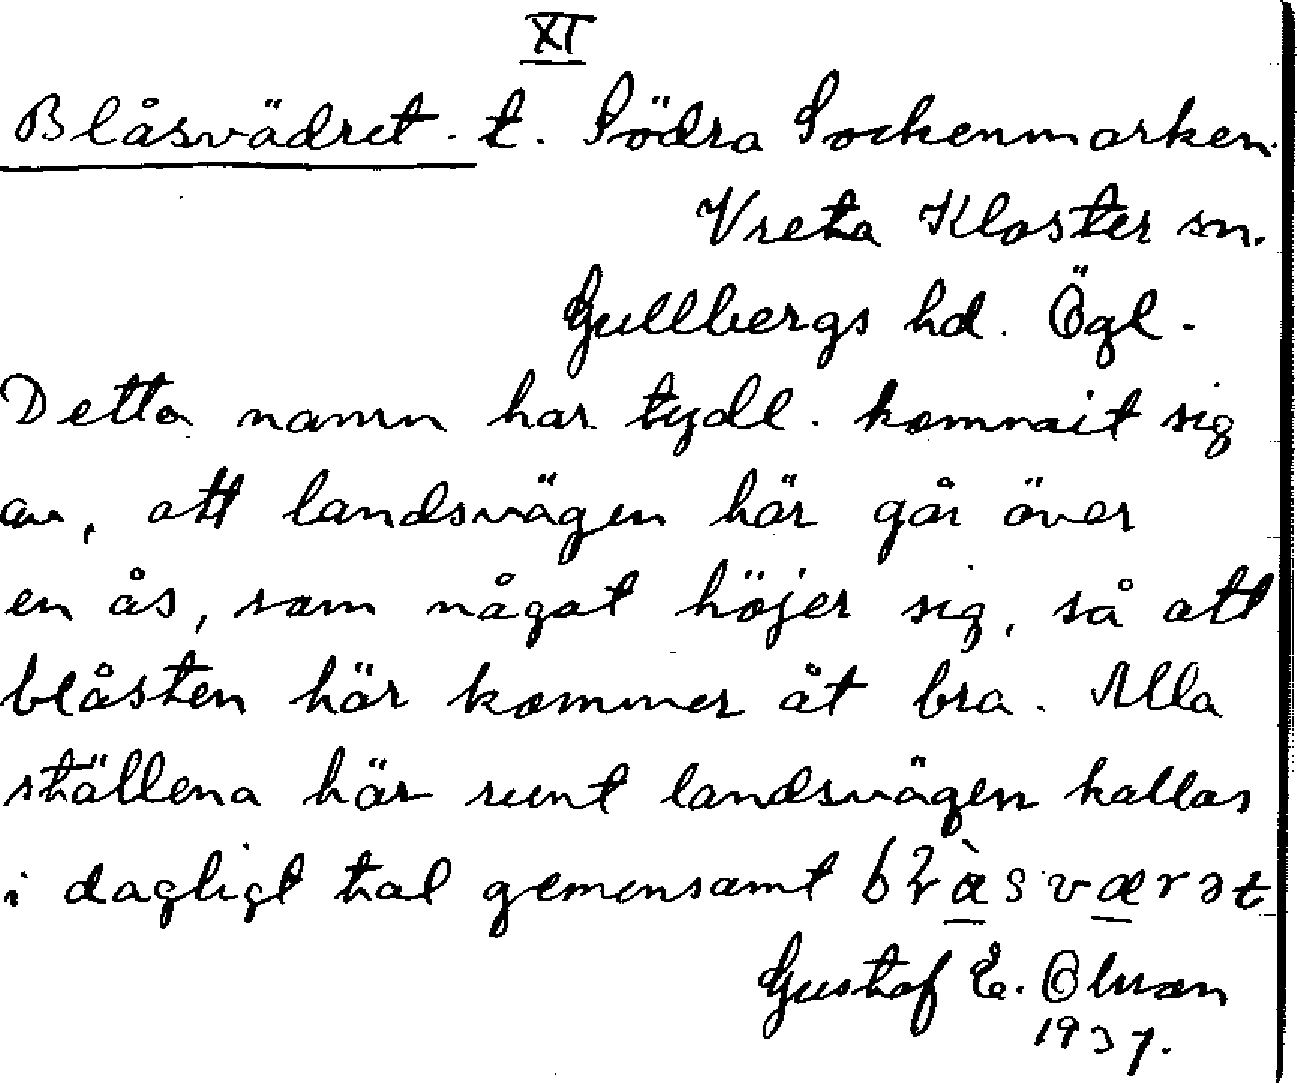 XI
Blåsvädret. t. Södra Sockenmarken.
Vreta Kloster sn.
Gullbergs hd. Ögl.
Detta namn har tydl. kommit sig
av, att landsvägen här går över
en ås, som något höjer sig, så att
blåsten här kommer åt bra. Alla
ställena här runt landsvägen kallas
i dagligt tal gemensamt
Gustaf E.
1937.